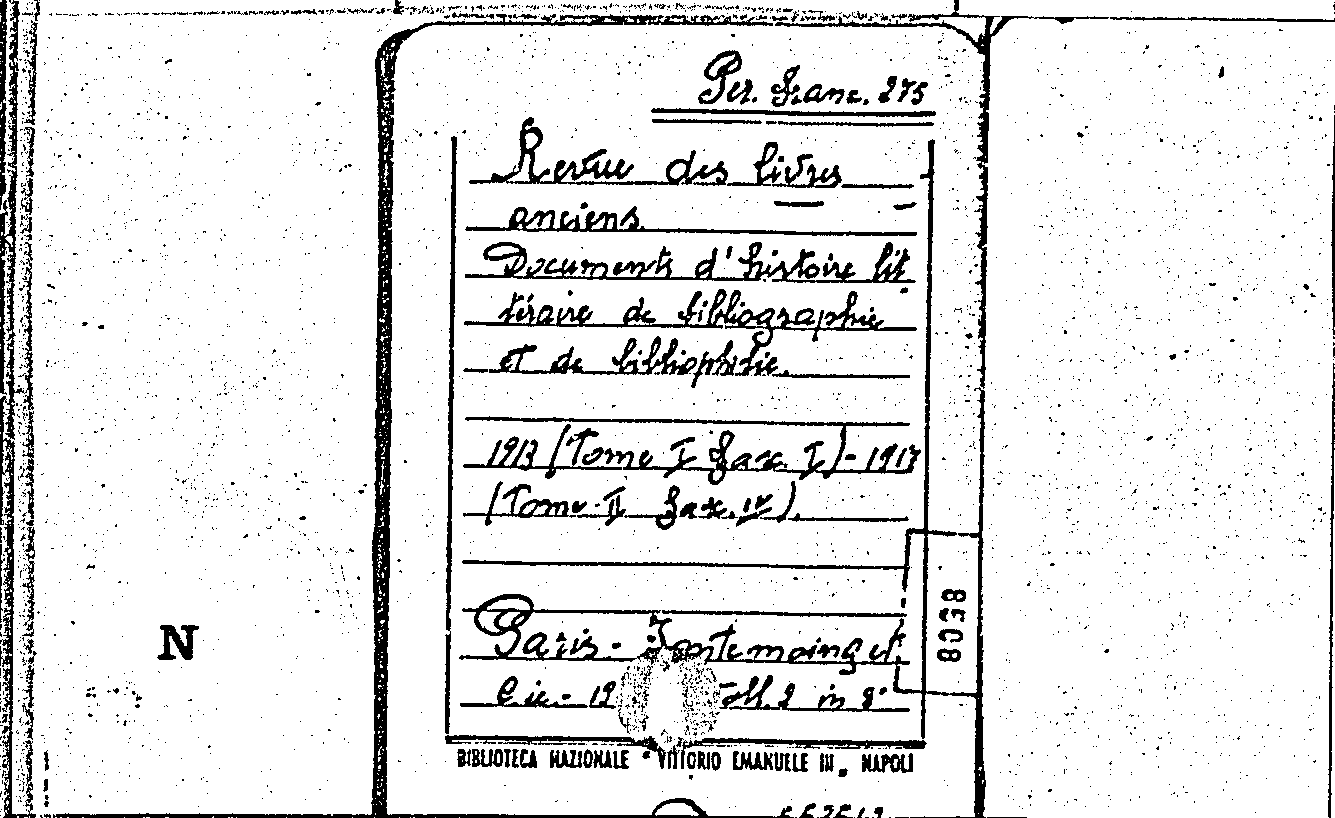 Per. franc. 275
Revue des livres
anciens.
Documents d'histoire lit
téraire de bibliographie
et de bibliophilie.
1913 (Tome I fasc. I) - 1917
(Tome II fasc. IV).
Paris - Fontemoing et
C.ie - 19 2 in 8°
8038
N
BIBLIOTECA NAZIONALE " VITTORIO EMANUELE III „ NAPOLI